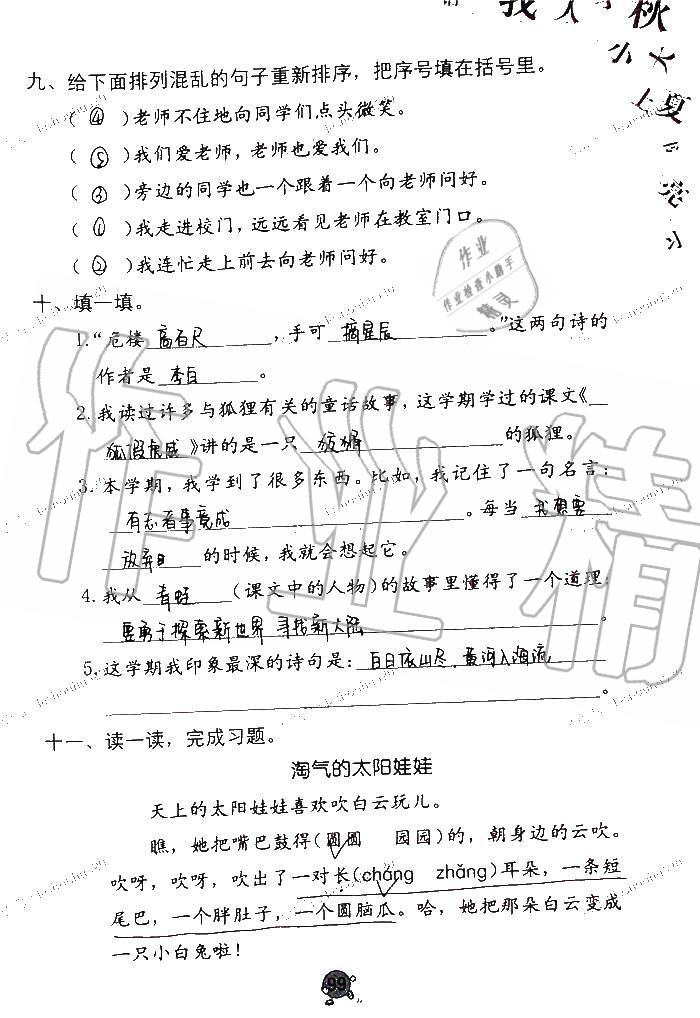 我 人 秋
公 大
上 夏
九、给下面排列混乱的句子重新排序，把序号填在括号里。
（ ④ ）老师不住地向同学们点头微笑。
（ ⑤ ）我们爱老师，老师也爱我们。
（ ③ ）旁边的同学也一个跟着一个向老师问好。
（ ① ）我走进校门，远远看见老师在教室门口。
（ ② ）我连忙走上前去向老师问好。
作业
作业检查小助手
精灵
十、填一填。
1.“危楼 高百尺 ，手可 摘星辰 。”这两句诗的
作者是 李白 。
2.我读过许多与狐狸有关的童话故事，这学期学过的课文《
狐假虎威 》讲的是一只 狡猾 的狐狸。
3.本学期，我学到了很多东西。比如，我记住了一句名言：
有志者事竟成 。每当 我想要
放弃时 的时候，我就会想起它。
4.我从 青蛙 （课文中的人物）的故事里懂得了一个道理：
要勇于探索新世界 寻找新大陆
5.这学期我印象最深的诗句是： 白日依山尽，黄河入海流
。
十一、读一读，完成习题。
淘气的太阳娃娃
天上的太阳娃娃喜欢吹白云玩儿。
瞧，她把嘴巴鼓得（圆圆 园园）的，朝身边的云吹。
吹呀，吹呀，吹出了一对长（cháng zhǎng）耳朵，一条短
尾巴，一个胖肚子，一个圆脑瓜。哈，她把那朵白云变成
一只小白兔啦！
99
作业精